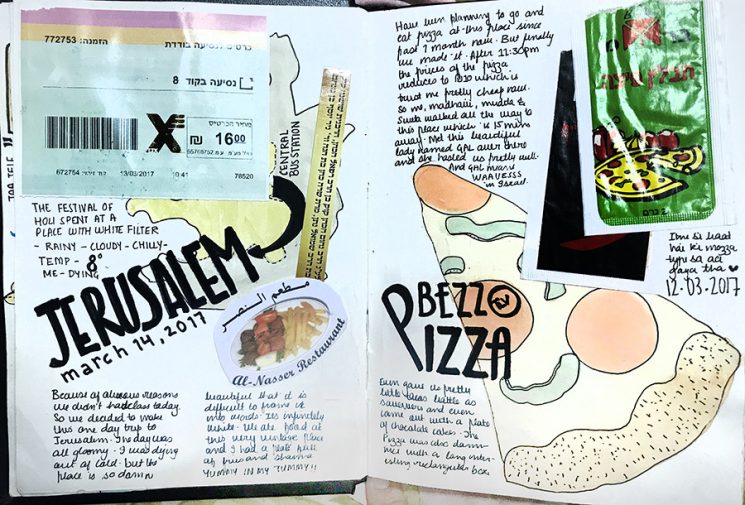 772753 הזמנה:
כרטיס נסיעה בודדת
נסיעה בקוד 8
מחיר הכרטיס
₪ 16.00
672754
13/03/2017
10:41
78520
CENTRAL
BUS STATION
THE FESTIVAL OF
HOLI SPENT AT A
PLACE WITH WHITE FILTER
- RAINY - CLOUDY - CHILLY-
TEMP - 8°
ME - DYING
JERUSALEM
march 14, 2017
مطعم النصر
Al-Nasser Restaurant
Because of reasons
we didn't had class today.
So we decided to make
this one day trip to
Jerusalem. The day was
all gloomy. I was dying
out of cold. but the
place is so damn
beautiful that it is
difficult to frame it
into words. Its infinitely
white. We ate food at
this very place
and I had a plate full
of and
YUMMY IN MY TUMMY!!
Have been planning to go and
eat pizza at this place since
past 1 month now. But finally
we made it. After 11:30pm
the prices of the pizza
reduces to which is
trust me pretty cheap now.
So me, madhavi, &
walked all the way to
this place which is 15 mins
away. Met this beautiful
lady named GAL over there
and she hosted us pretty well.
And GAL means
WAAVESSS
in Israel.
תבלין פיצה
PBEZZO
PIZZA
Even gave us pretty
little as
and even
came out with a plate
of chocolate cakes. The
Pizza was also damn
nice with a long inter-
esting rectangular box.
hai ke mozza
gaya tha ♥
12.03.2017